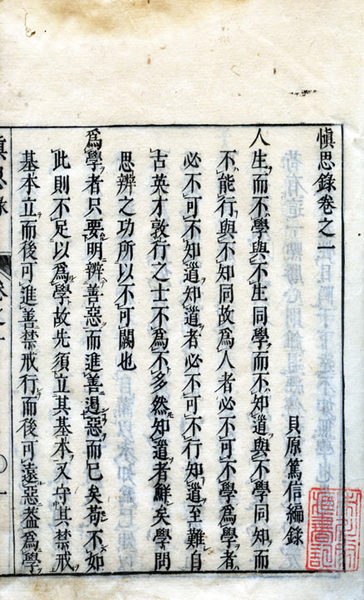 慎思錄卷之一
貝原篤信編錄
人生而不學與不生同學而不知道與不學同知而
不能行與不知同故爲人者必不可不學爲學者
必不可不知道知道者必不可不行知道至難自
古英才敦行之士不爲不多然知道者鮮矣學問
思辨之功所以不可闕也
爲學者只要明辨善惡而進善遏惡而已矣苟不如
此則不足以爲學故先須立其基本又守其禁戒
基本立而後可進善禁戒行而後可遠惡蓋爲學
慎思錄
卷之一